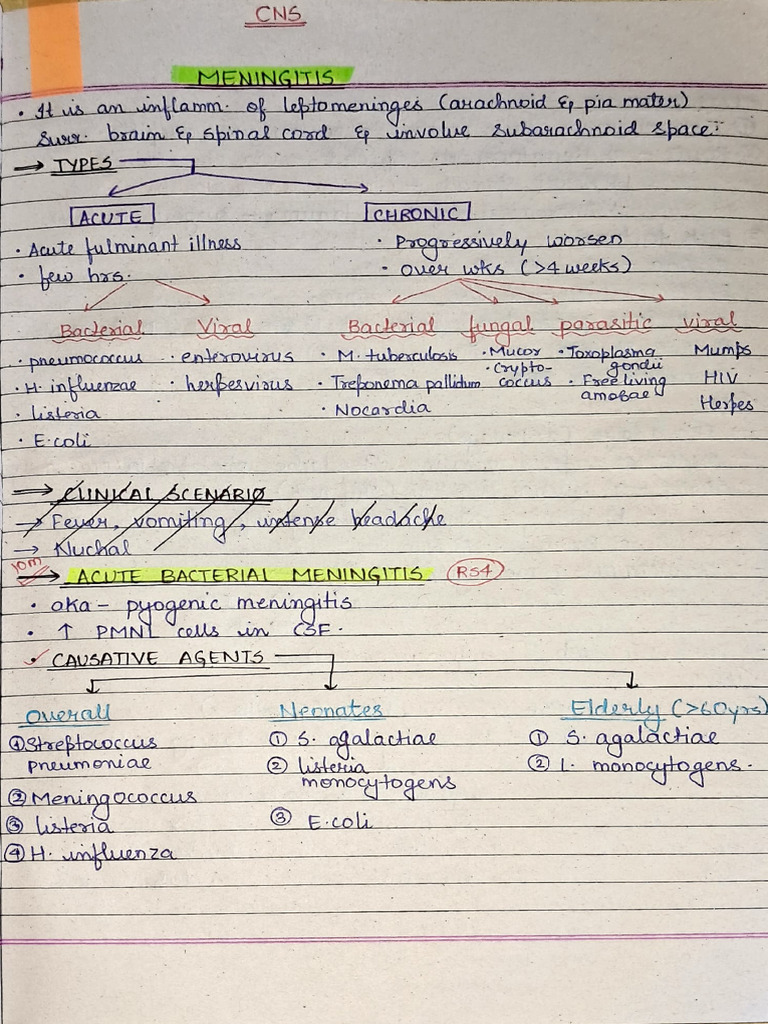 CNS
MENINGITIS
• It is an inflamm. of leptomeninges (arachnoid & pia mater)
surr. brain & spinal cord & involve subarachnoid space.
→ TYPES
ACUTE CHRONIC
• Acute fulminant illness • Progressively worsen
• few hrs. • over wks (>4 weeks)
Bacterial Viral Bacterial fungal parasitic viral
• pneumococcus • enterovirus • M. tuberculosis • Mucor • Toxoplasma gondii Mumps
• H. influenzae • herpesvirus • Treponema pallidum • Crypto-coccus • Free living amobae HIV
• listeria • Nocardia Herpes
• E.coli
→ CLINICAL SCENARIO
→ Fever, vomiting, intense headache
→ Nuchal
10m → ACUTE BACTERIAL MENINGITIS RS4
• aka - pyogenic meningitis
• ↑ PMNL cells in CSF.
✓ CAUSATIVE AGENTS
Overall Neonates Elderly (>60yrs)
① Streptococcus ① S. agalactiae ① S. agalactiae
pneumoniae ② listeria ② L. monocytogens.
monocytogens
② Meningococcus
③ listeria ③ E.coli
④ H. influenza